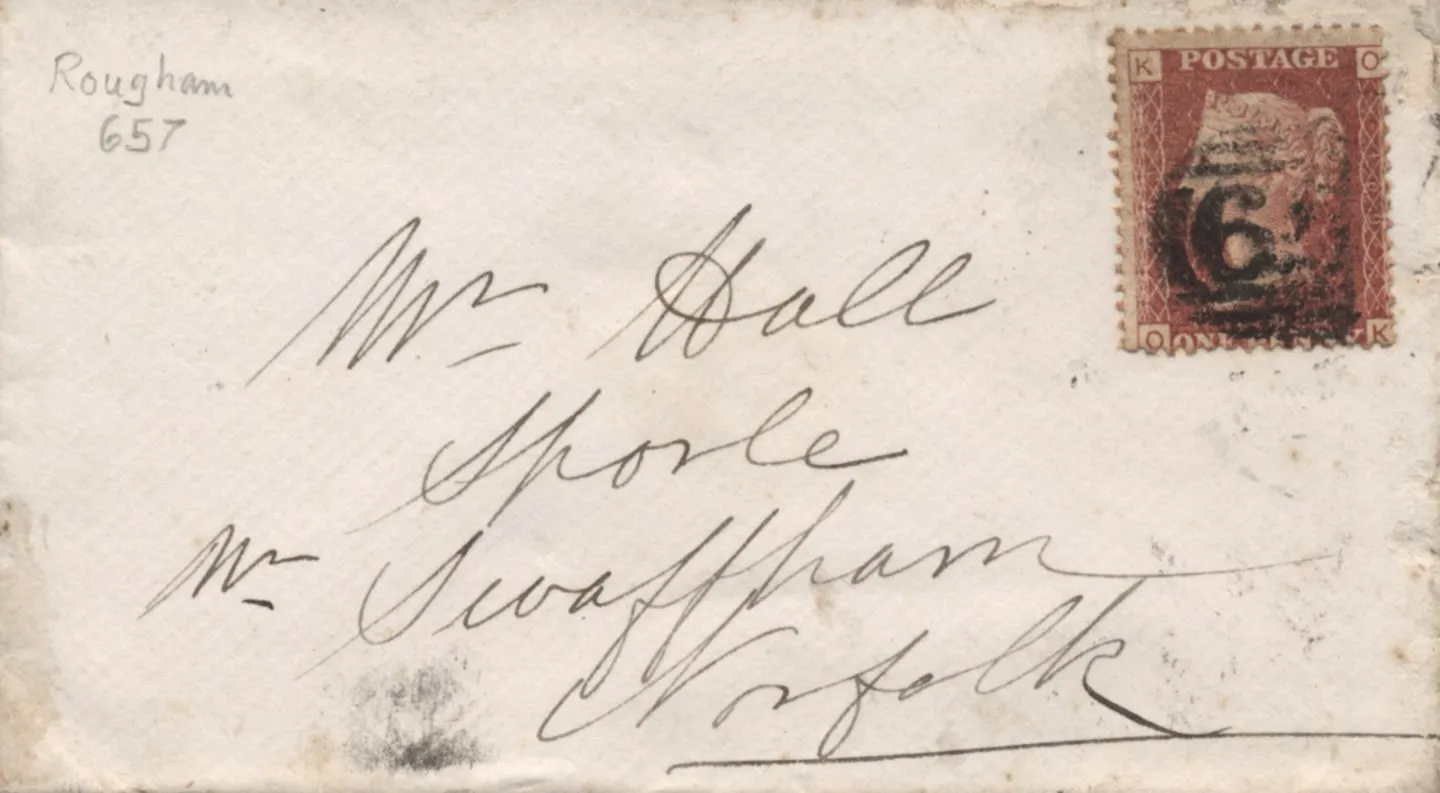 Rougham
657
K POSTAGE O
6
O ONE PENNY K
Mr Hall
Sporle
Nr Swaffham
Norfolk